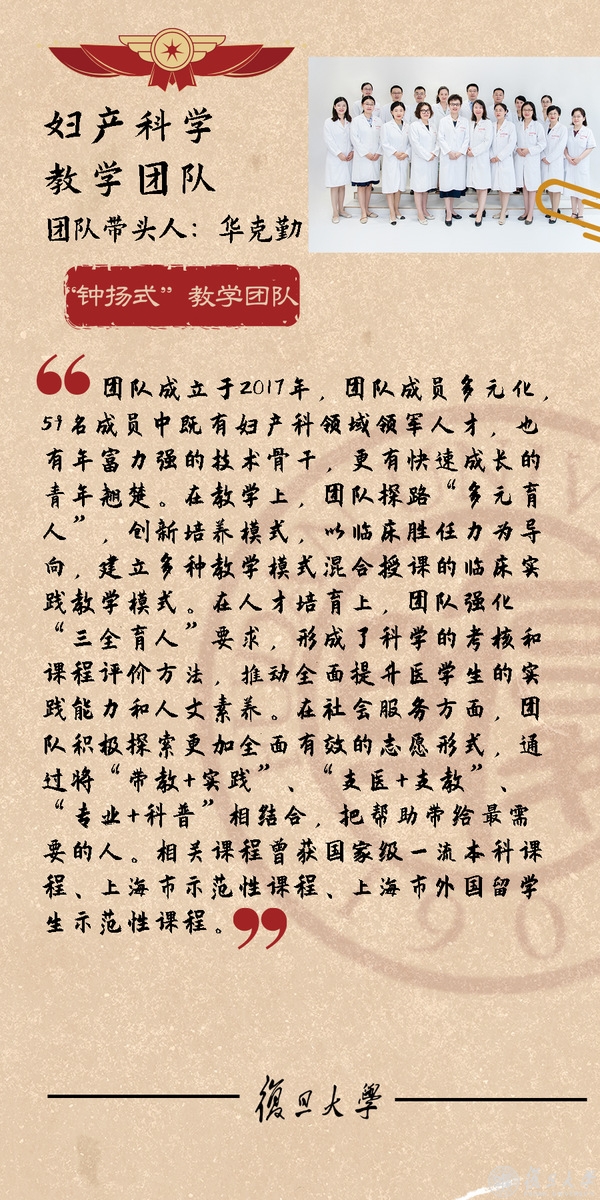 妇产科学
教学团队
团队带头人：华克勤
“钟扬式”教学团队
团队成立于2017年，团队成员多元化，
59名成员中既有妇产科领域领军人才，也
有年富力强的技术骨干，更有快速成长的
青年翘楚。在教学上，团队探路“多元育
人”，创新培养模式，以临床胜任力为导
向，建立多种教学模式混合授课的临床实
践教学模式。在人才培育上，团队强化
“三全育人”要求，形成了科学的考核和
课程评价方法，推动全面提升医学生的实
践能力和人文素养。在社会服务方面，团
队积极探索更加全面有效的志愿形式，通
过将“带教+实践”、“支医+支教”、
“专业+科普”相结合，把帮助带给最需
要的人。相关课程曾获国家级一流本科课
程、上海市示范性课程、上海市外国留学
生示范性课程。
復旦大學